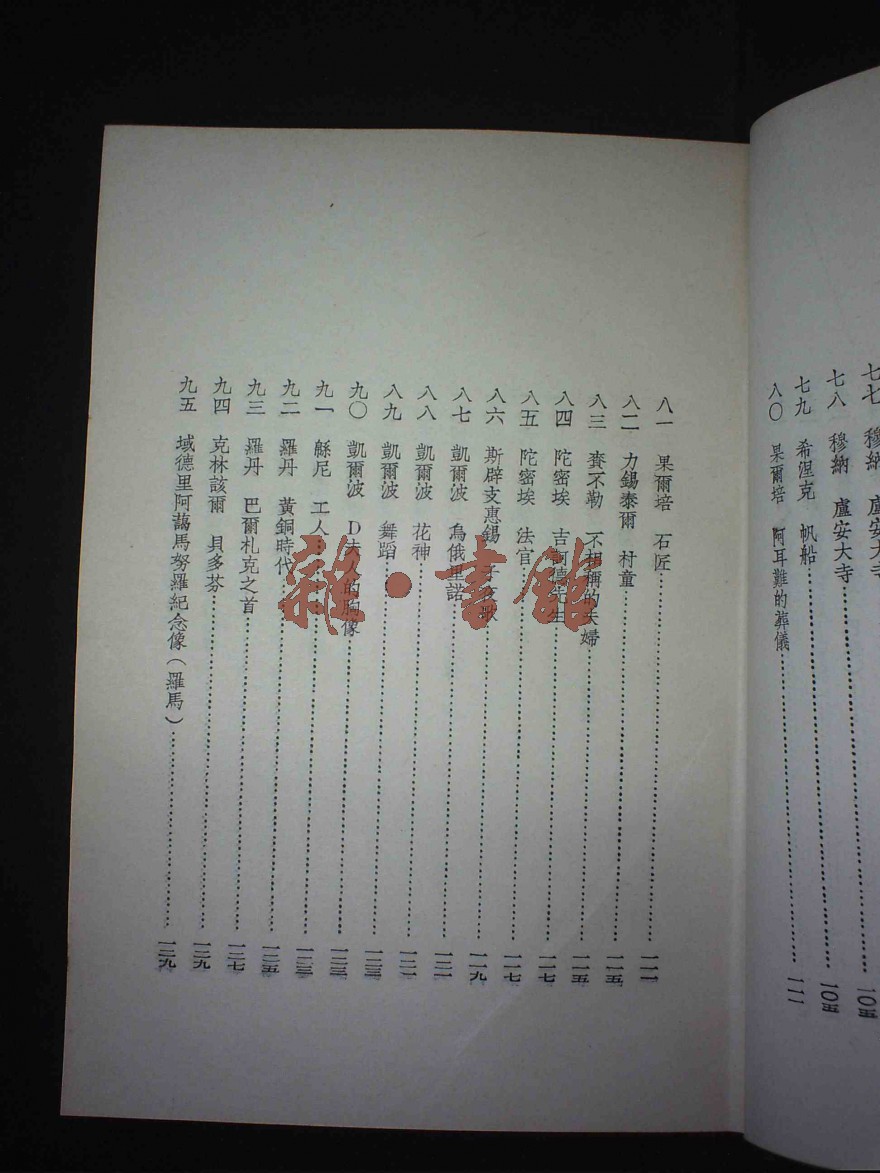 七七 穆納 盧安大寺 一〇五
七八 穆納 盧安大寺 一〇五
七九 希涅克 帆船 一一一
八〇 果爾培 阿耳難的葬儀
八一 果爾培 石匠 一一一
八二 力錫泰爾 村童 一一五
八三 賚不勒 不相稱的夫婦 一一五
八四 陀密埃 吉訶德先生 一一七
八五 陀密埃 法官 一一七
八六 斯辟支惠錫 子夜歌 一一九
八七 凱爾波 烏俄里諾 一二一
八八 凱爾波 花神 一二一
八九 凱爾波 舞蹈 一二三
九〇 凱爾波 D夫人的胸像 一二三
九一 緜尼 工人 一二三
九二 羅丹 黃銅時代 一二五
九三 羅丹 巴爾札克之首 一二七
九四 克林該爾 貝多芬 一二九
九五 域德里阿藹馬努羅紀念像(羅馬) 一二九
雜·書館